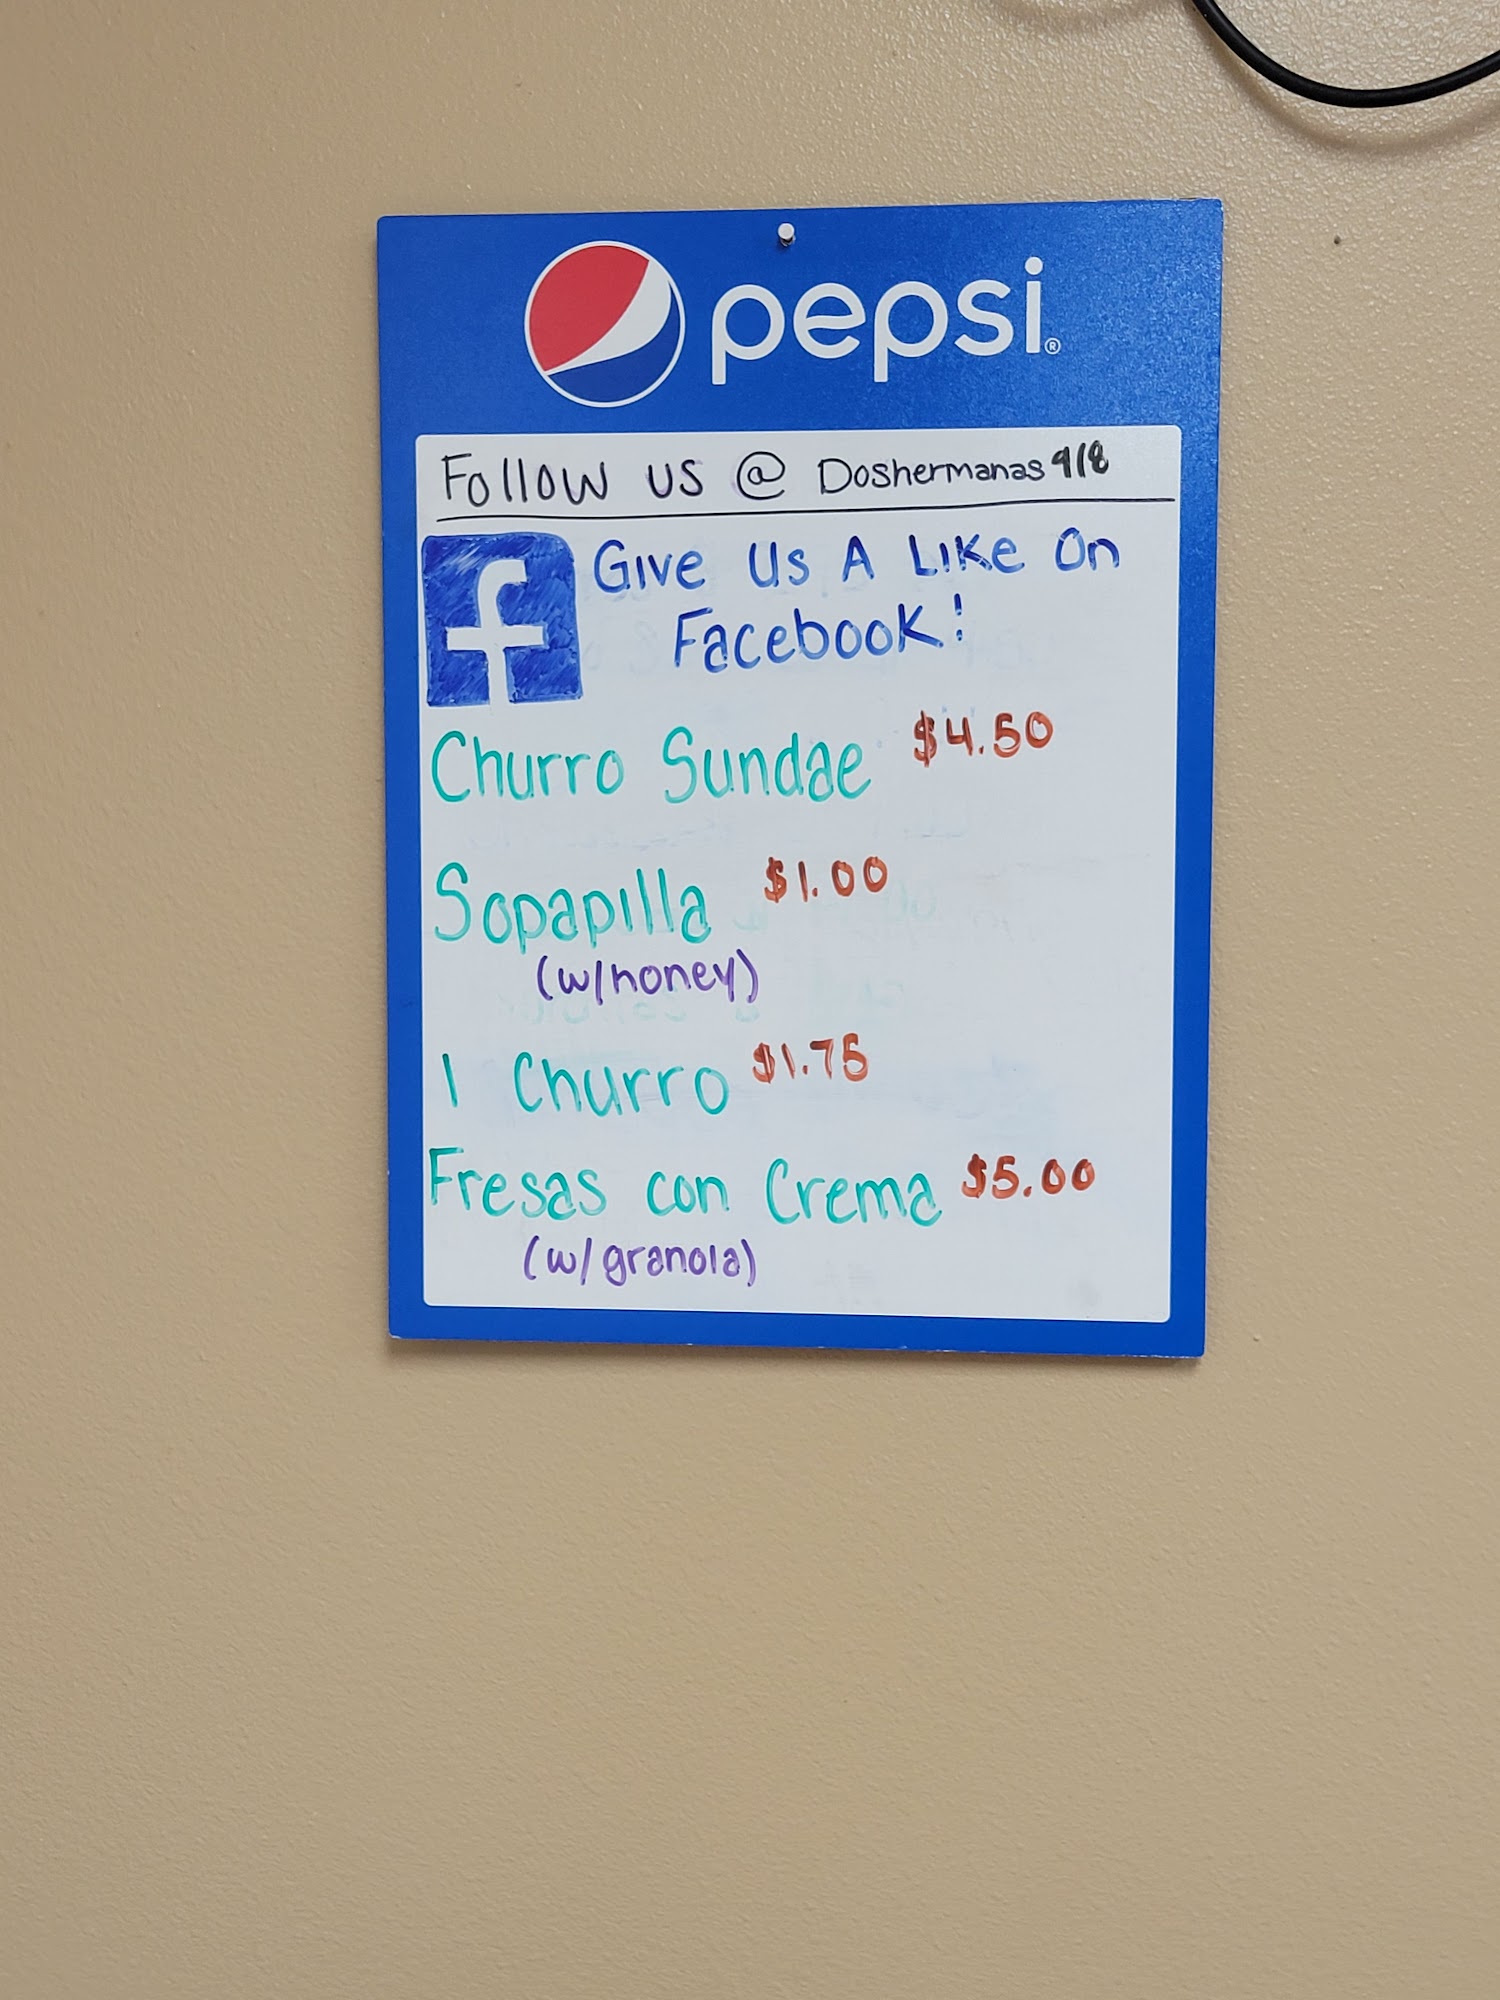 pepsi®
Follow us @ Doshermanas918
Give Us A Like On
Facebook!
Churro Sundae $4.50
Sopapilla $1.00
(w/honey)
1 Churro $1.75
Fresas con Crema $5.00
(w/granola)